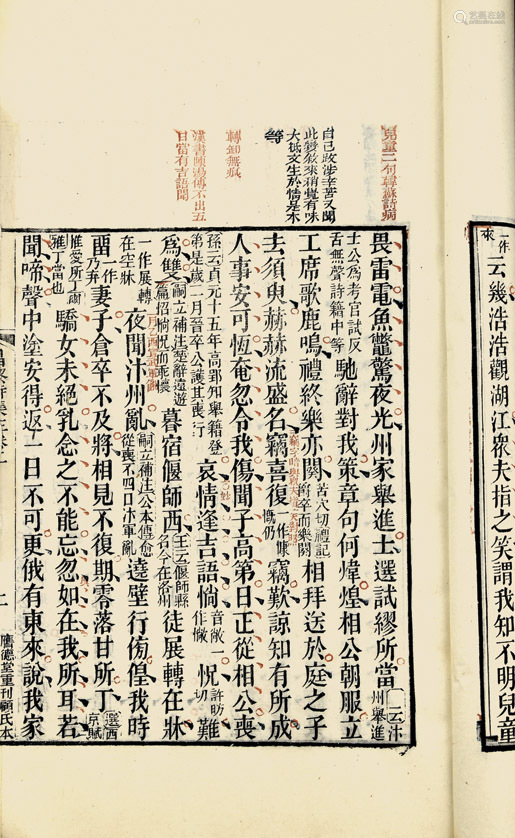 一作來云幾浩浩觀湖江衆夫指之笑謂我知不明兒童
兒童二句韓蘇詩病
自己政涉辛苦又聞
此變敘來稍覺有味
大抵文生於情是不
等
轉卸無痕
漢書陳湯傳不出五
日當有吉語聞
畏雷電魚鼈驚夜光州家舉進士選試繆所當一云汴州舉進
士公為考官試反舌無聲詩籍中等馳辭對我策章句何煒煌相公朝服立
工席歌鹿鳴禮終樂亦闋苦穴切禮記卒而樂闋相拜送於庭之子
去須臾赫赫流盛名竊喜復作慷慨仍竊歎諒知有所成
人事安可恆奄忽令我傷聞子高第日正從相公喪
孫云貞元十五年高郢知舉籍登第是歲二月晉卒公護其喪行哀情逢吉語惝音敞一作敞怳許昉切難
為雙嗣立補注楚辭遠遊怊惝怳而乖懷暮宿偃師西偃師縣名今在洛州徒展轉在牀
一作展轉在空牀夜聞汴州亂嗣立補注公本傳愈從喪不四日汴軍亂遶壁行徬徨我時
留一作乃弃妻子倉卒不及將相見不復期零落甘所丁選西京賦
惟愛所丁爾雅丁當也驕女未絕乳念之不能忘忽如在我所耳若
聞啼聲中塗安得返一日不可更俄有東來說我家
膺德堂重刊顧氏本